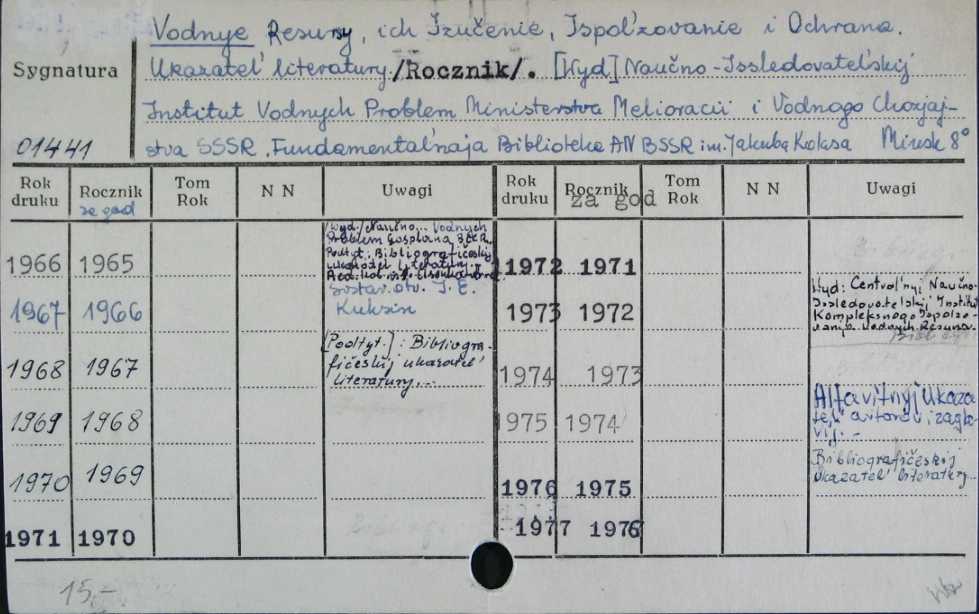 Vodnye Resursy, ich Izučenie, Ispol'zovanie i Ochrana.
Sygnatura
Ukazatel' literatury /Rocznik/. [Wyd] Naučno-Issledovatel'skij
Institut Vodnych Problem Ministerstva Melioracii i Vodnogo Chozjaj-
01441
stva SSSR, Fundamental'naja Biblioteka AN BSSR im. Jakuba Kolasa Minsk 8°
Rok druku Rocznik za god Tom Rok N N Uwagi Rok druku Rocznik za god Tom Rok N N Uwagi
/Wyd./ Naučno... Vodnych
Problem Gosplana
Podtyt.: Bibliografičeskij
ukazatel' literatury.-
1966 1965
Sostav. otv. I. E.
Kuksin
1972 1971
1967 1966
1973 1972
Wyd: Central'nyj Naučno-
Issledovatel'skij Institut
Kompleksnogo Ispol'zo-
vanija Vodnych Resursov
[Podtyt.]: Bibliogra-
fičeskij ukazatel'
literatury...
1968 1967
1974 1973
1969 1968
1975 1974
Alfavitnyj Ukaza-
tel' avtorov i zagla-
vij. -
1970 1969
1976 1975
Bibliografičeskij
Ukazatel' literatury...
1971 1970
1977 1976
15,-